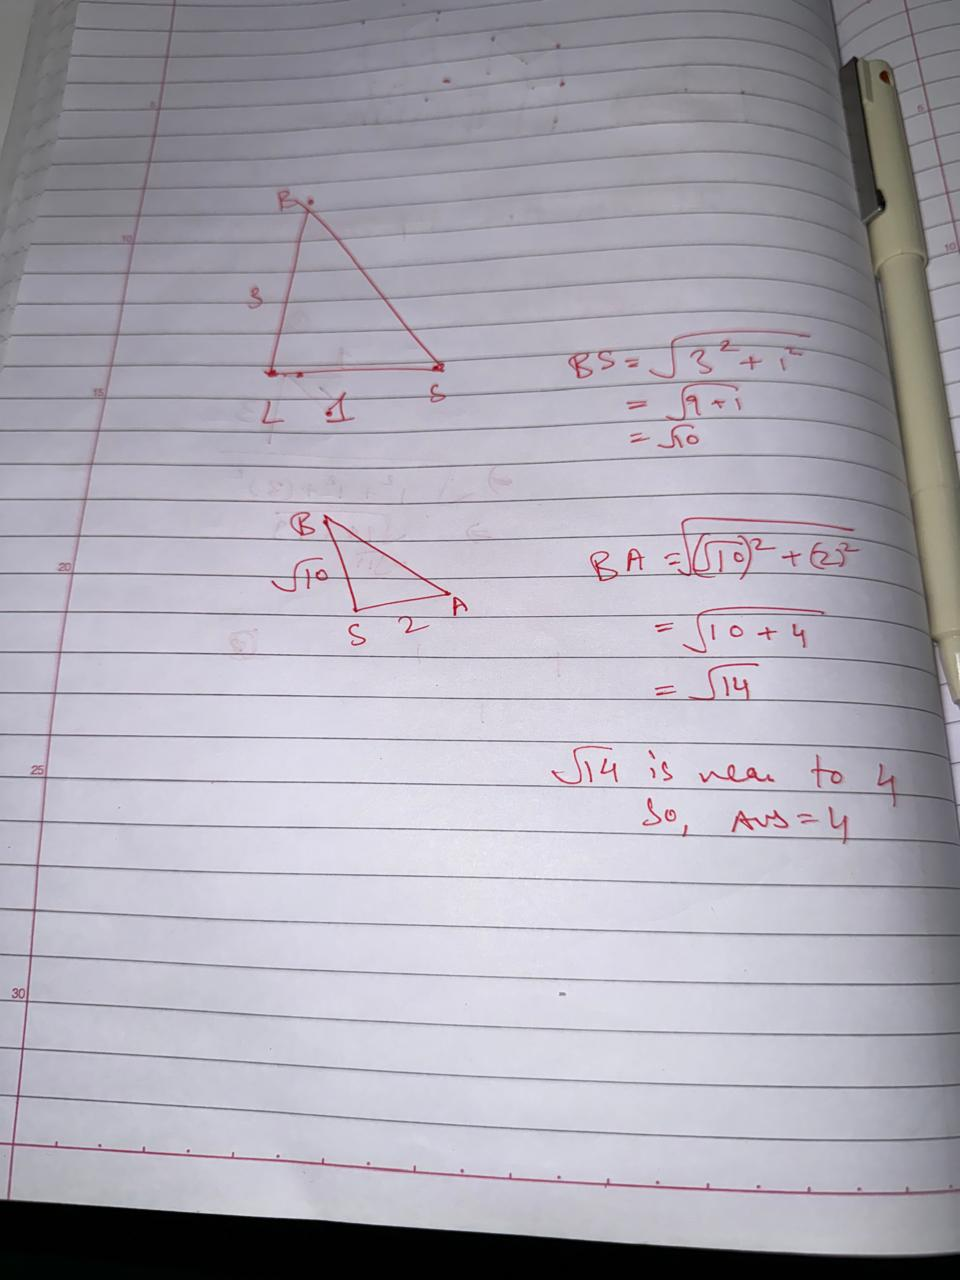 B
3
L 1 S
BS = √3² + 1²
= √9 + 1
= √10
B
√10
S 2 A
BA = √(√10)² + (2)²
= √10 + 4
= √14
√14 is near to 4
So, Ans = 4
5
10
15
20
25
30
5
10